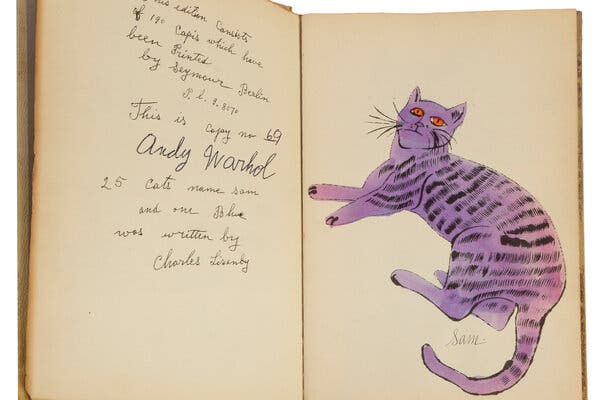 This edition Consists
of 190 Capis which have
been Printed
by Seymour Berlin
P. L. 8.8070
This is
Copy no 69
Andy Warhol
25 Cats name sam
and one Blue
was written by
Charles Lisanby
Sam